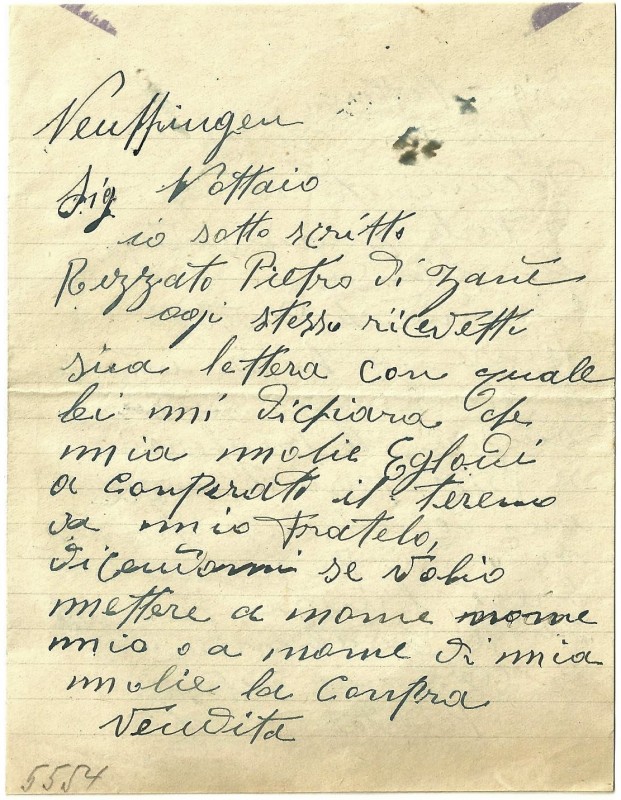 Neuffingen
Sig Nottaio
io sotto scritto
Rizzato Pietro di Zane
ogi stesso ricevetti
sua lettera con quale
lei mi dichiara che
mia molie
a Conperato il tereno
da mio Fratelo,
dicendomi se volio
mettere a nome nome
mio o a nome di mia
molie la Conpra
Vendita
5554